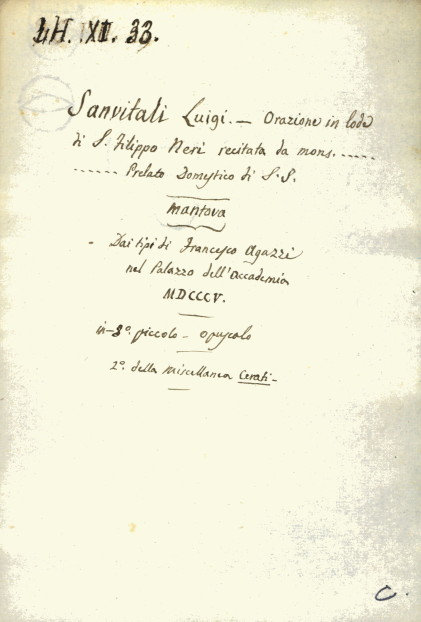 4H. XI. 33.
Sanvitali Luigi. — Orazione in lode
di S. Filippo Neri recitata da mons. ......
...... Prelato Domestico di S.S.
Mantova
- Dai tipi di Francesco Agazzi
nel Palazzo dell'Accademia
MDCCCV.
in-8º. piccolo - opuscolo
2º. della miscellanea Cerati -
C.